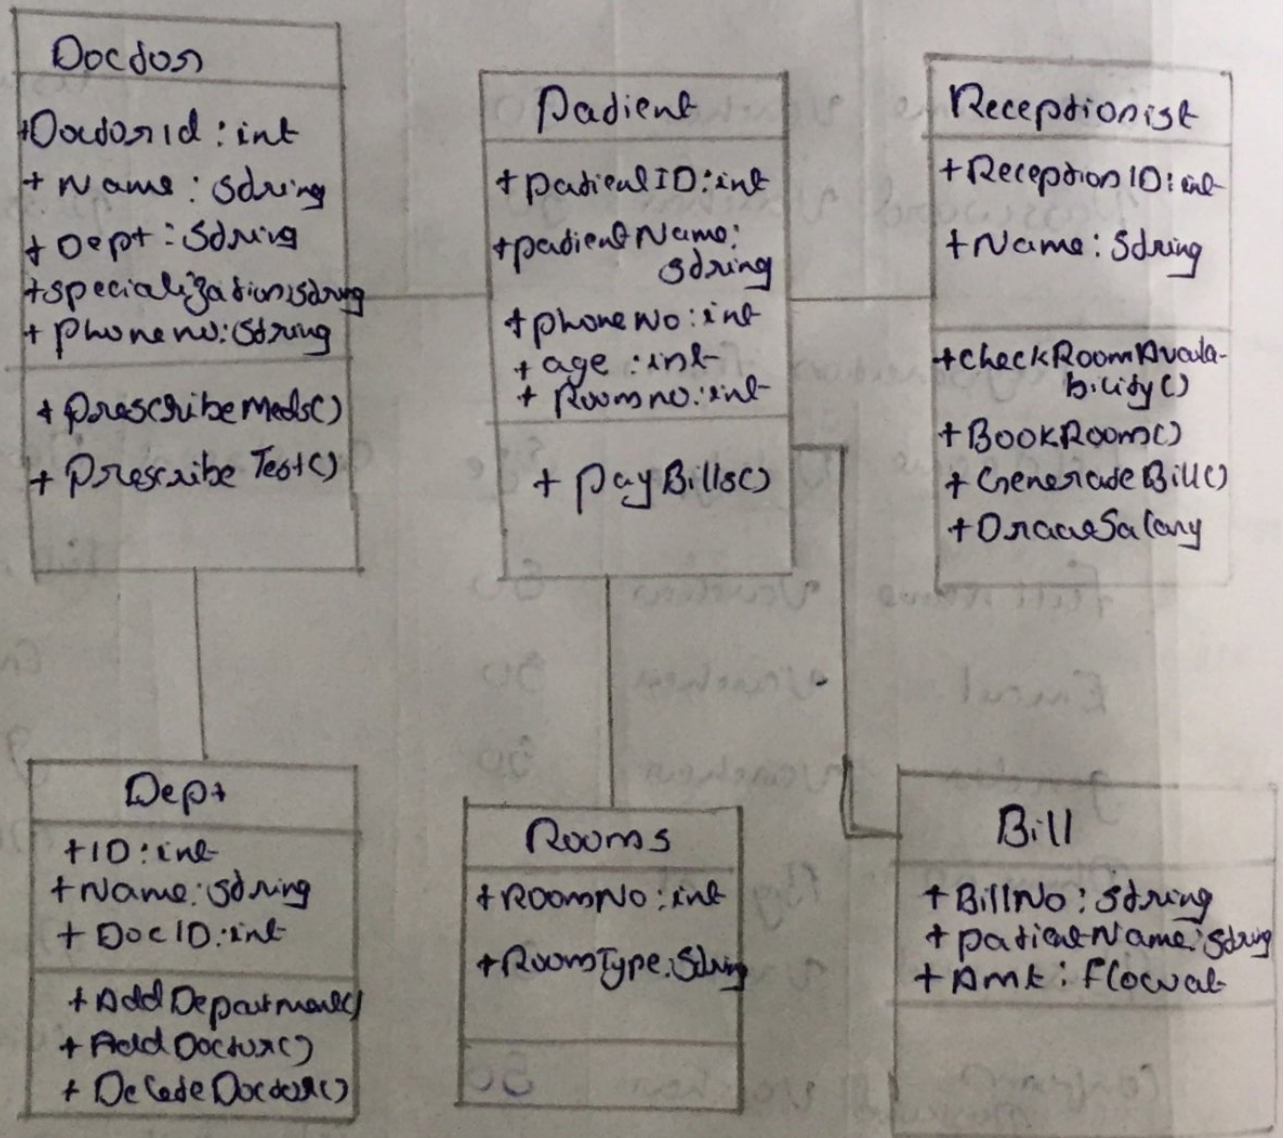 Doctor
+DoctorId : int
+ Name : String
+ Dept : String
+specialization:string
+ Phoneno:String
+ PrescribeMeds()
+ Prescribe Test()
Patient
+ patientID:int
+patientName:
string
+ phoneNo:int
+ age : int
+ Roomno.:int
+ payBills()
Receptionist
+ReceptionID:int
+Name : String
+checkRoomAvaila-
bility()
+BookRoom()
+ GenerateBill()
Dept
+ID:int
+Name:string
+ DocID:int
+AddDepartment()
+ AddDoctor()
+ DeleteDoctor()
Rooms
+RoomNo:int
+RoomType:String
Bill
+BillNo : string
+ patientName:string
+Amt :